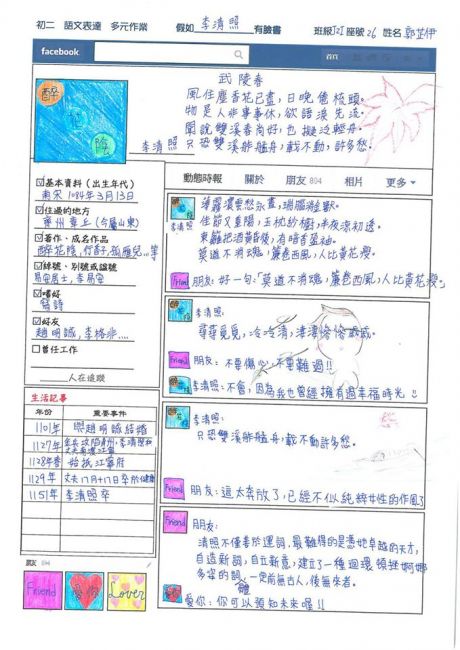 初二 語文表達 多元作業 假如 李清照 有臉書 班級 座號26 姓名 郭芷伊
facebook
首頁
武陵春
風住塵香花已盡，日晚倦梳頭。
物是人非事事休，欲語淚先流。
聞說雙溪春尚好，也擬泛輕舟。
只恐雙溪舴艋舟，載不動，許多愁。
醉花陰
李清照
動態時報 關於 朋友 894 相片 更多
基本資料（出生年代）
南宋1084年3月13日
住過的地方
齊州章丘（今屬山東）
著作、成名作品
醉花陰,行香子,孤雁兒...等
綽號、別號或諡號
易安居士，李易安
嗜好
寫詩
好友
趙明誠，李格非....
曾任工作
人在追蹤
生活記事
年份 重要事件
1101年 與趙明誠結婚
1127年 金兵攻陷青州，李清照和丈夫南渡江寧
1128年春 始抵江寧府
1129年 丈夫八月十八日卒於健康
1151年 李清照卒
朋友 894
Friend 愛你 Lover
李清照
薄霧濃雲愁永晝，瑞腦消金獸。
佳節又重陽，玉枕紗櫥，半夜涼初透。
東籬把酒黃昏後，有暗香盈袖。
莫道不消魂，簾卷西風，人比黃花瘦。
Friend 朋友：好一句「莫道不消魂，簾卷西風，人比黃花瘦。」
李清照：
尋尋覓覓，冷冷清清，悽悽慘慘戚戚。
Friend 朋友：不要傷心，不要難過!!
李清照：不會，因為我也曾經擁有過幸福時光!!
李清照：
只恐雙溪舴艋舟，載不動許多愁。
Friend 朋友：這太奔放了，已經不似純粹女性的作風了
Friend 朋友：
清照不僅善於運詞，最難得的是憑他卓越的天才，
自造新詞，自立新意，建立了一種
多容的詞體，一定前無古人，後無來者。
愛你：你可以預知未來喔!!